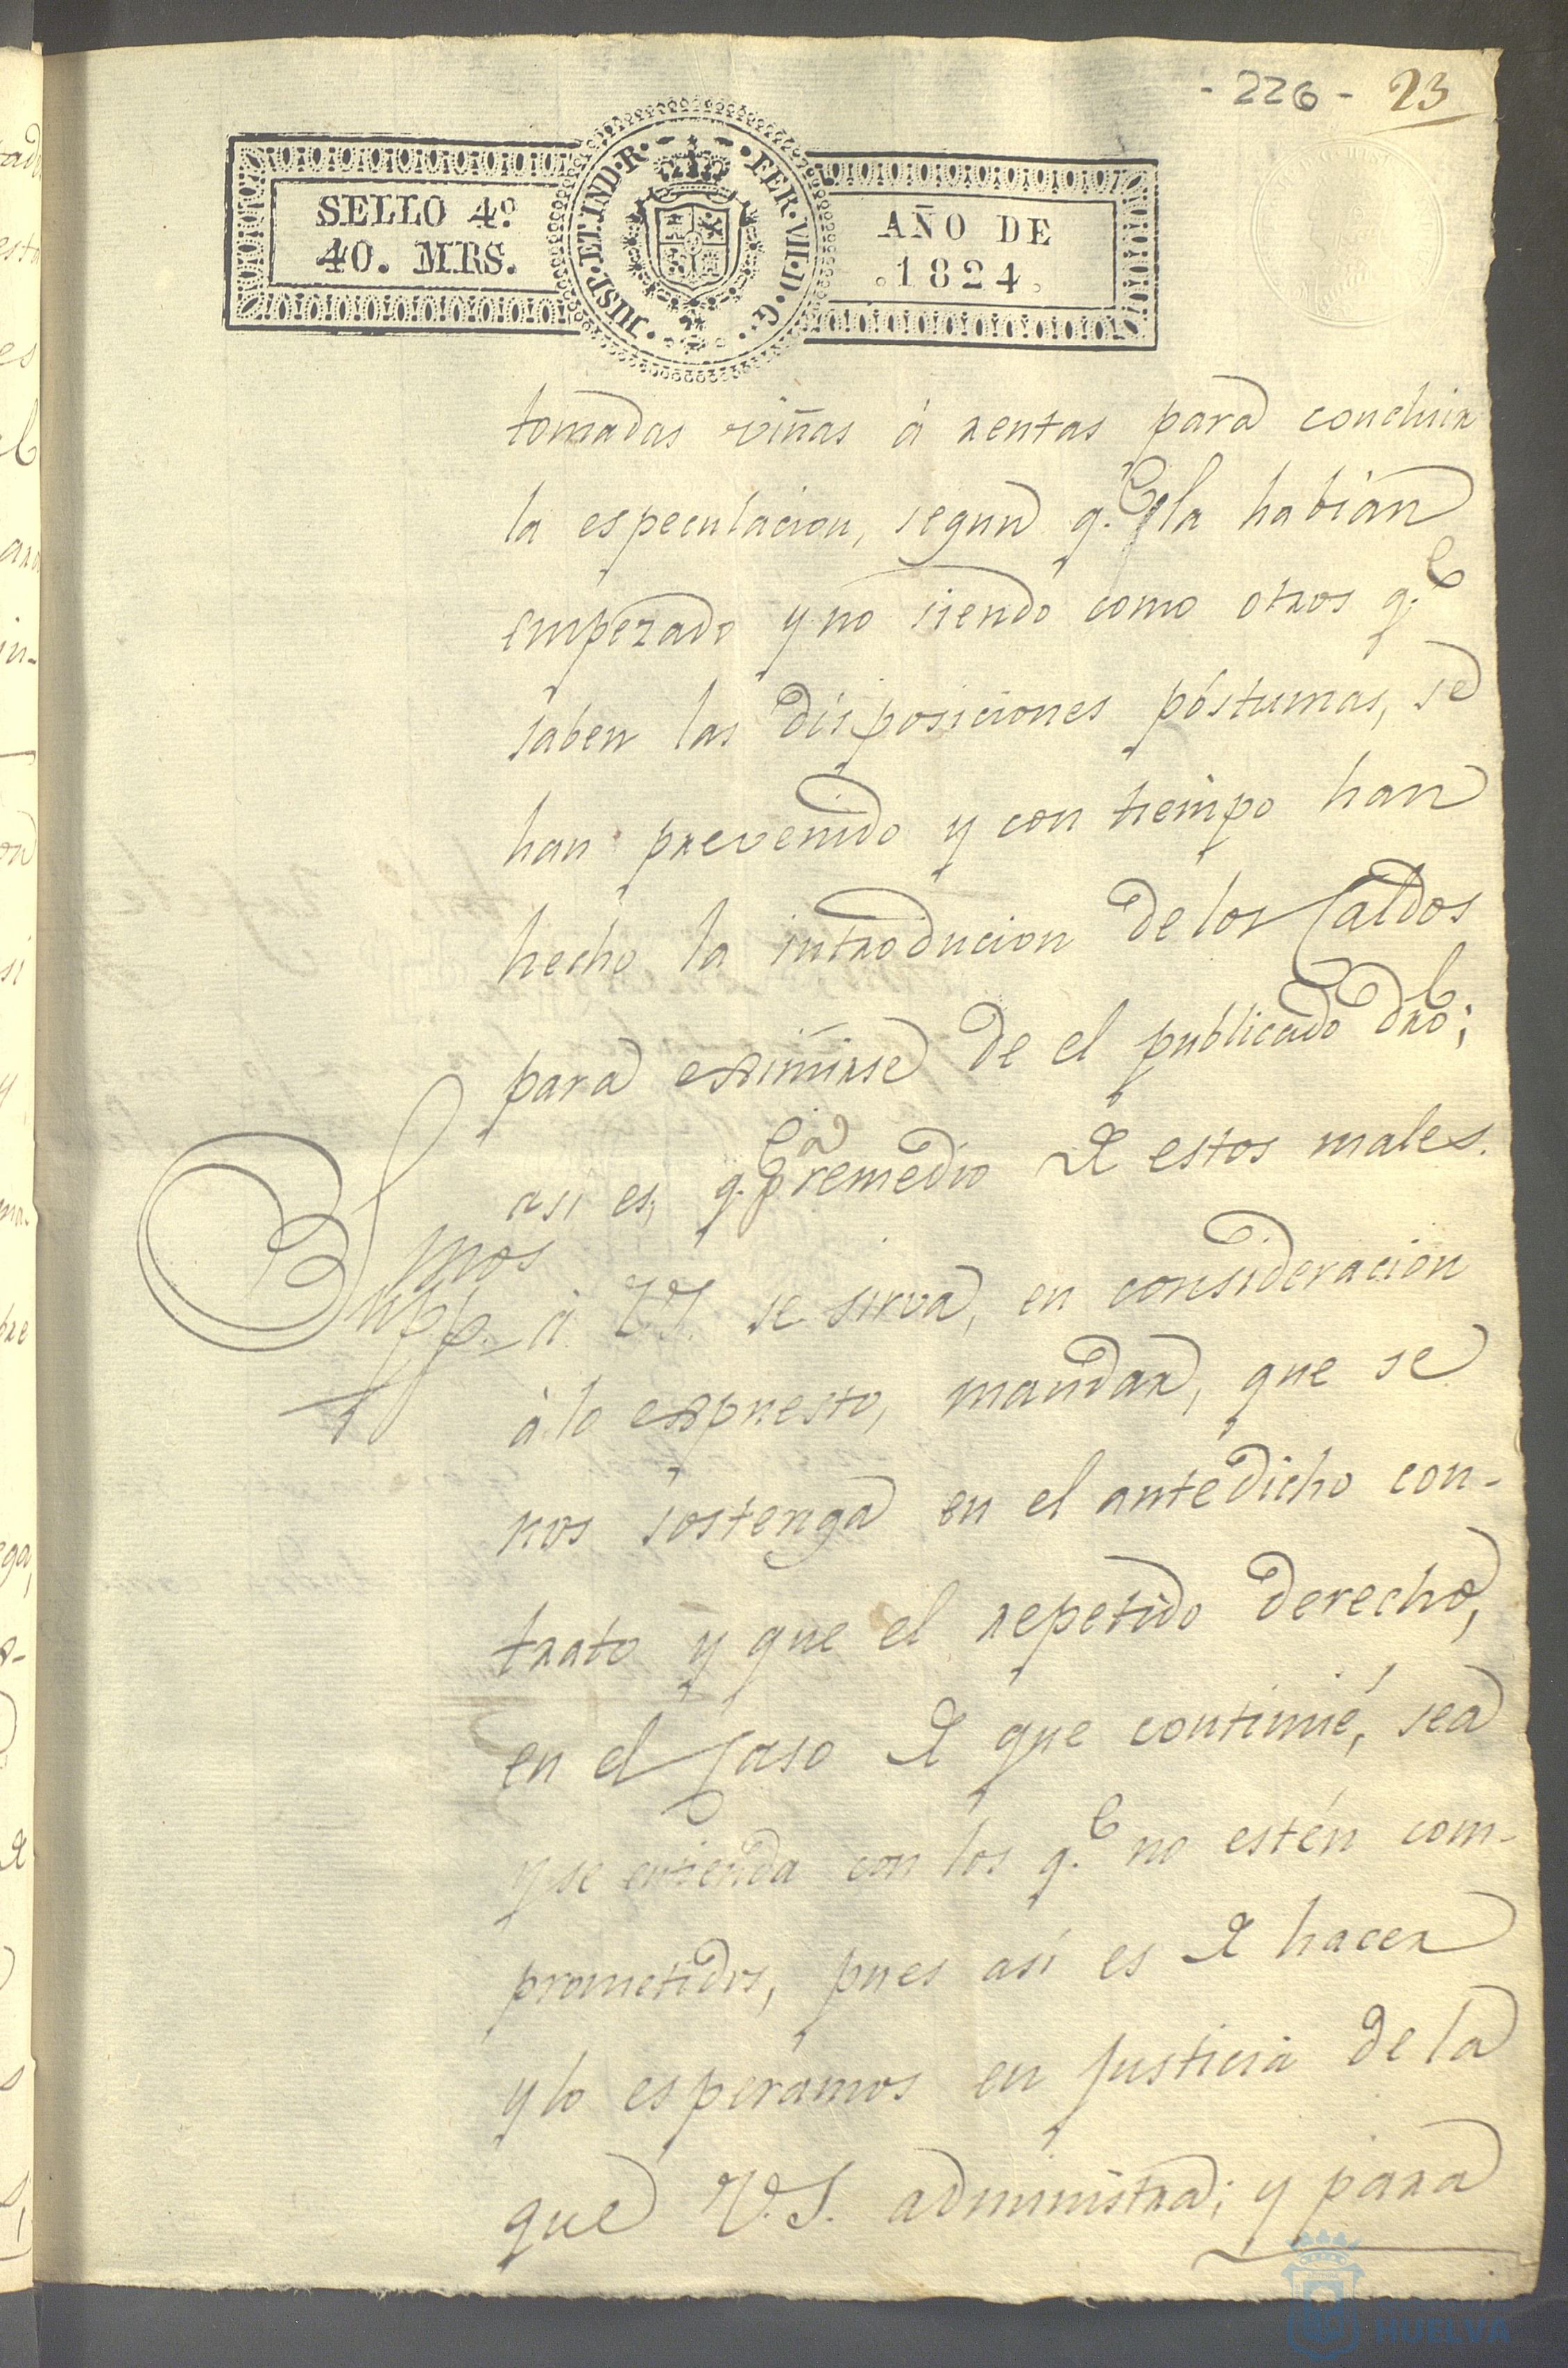 - 226 - 23
SELLO 4º
40. MRS.
HISP. ET IND. R. FER. VII. D. G.
AÑO DE
1824.
tomadas viñas á rentas para concluir
la especulacion, segun q.e la habian
empezado y no siendo como otros q.e
saben las disposiciones póstumas, se
han prevenido y con tiempo han
hecho la introducion de los Caldos
para eximirse de el publicado dro;
asi es, q.e pa remedio de estos males.
Suppmos á V.S. se sirva, en consideracion
á lo expuesto, mandar, que se
nos sostenga en el antedicho con-
trato y que el repetido derecho,
en el Caso de que continúe, sea
y se entienda con los q.e no estén com-
prometidos, pues así es de hacer
y lo esperamos en Justicia de la
que V.S. administra; y para
HUELVA